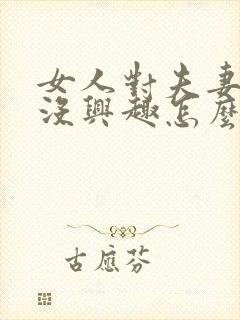 女人對夫妻
沒興趣怎麼
古應芬